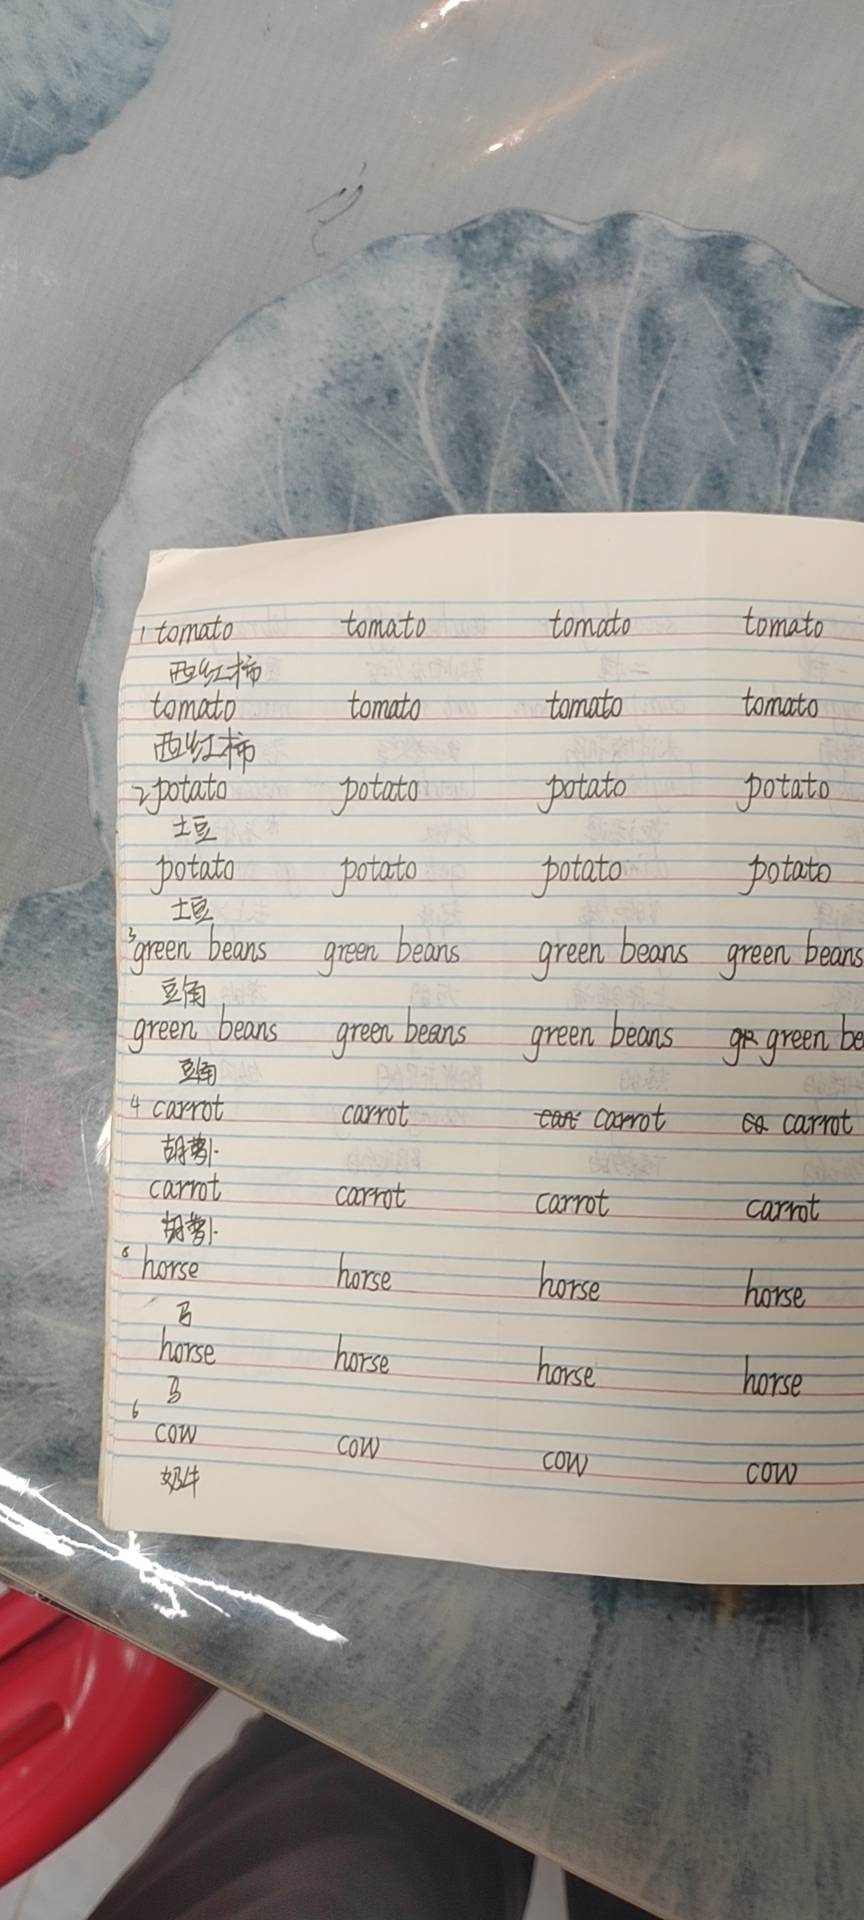 1 tomato tomato tomato tomato
西红柿
tomato tomato tomato tomato
西红柿
2 potato potato potato potato
土豆
potato potato potato potato
土豆
3 green beans green beans green beans green beans
豆角
green beans green beans green beans gr green be
豆角
4 carrot carrot car carrot ca carrot
胡萝卜
carrot carrot carrot carrot
胡萝卜
horse horse horse horse
马
horse horse horse horse
马
6
cow cow cow cow
奶牛